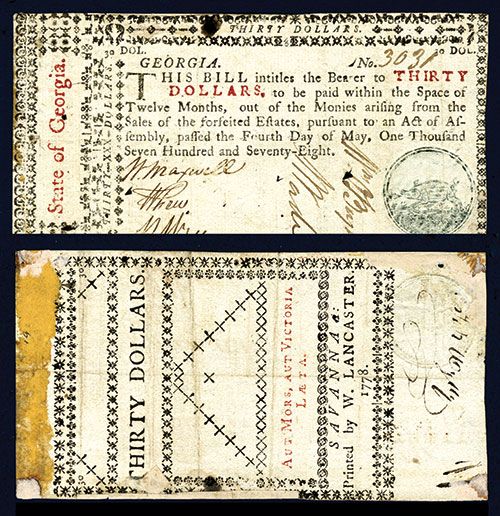 THIRTY DOLLARS.
30 DOL.
30 DOL.
State of Georgia.
GEORGIA.
No. 3031
THIS BILL intitles the Bearer to THIRTY
DOLLARS, to be paid within the Space of
Twelve Months, out of the Monies arising from the
Sales of the forfeited Estates, pursuant to an Act of Aſ-
ſembly, paſſed the Fourth Day of May, One Thouſand
Seven Hundred and Seventy-Eight.
W Maxwell
THIRTY DOLLARS
AUT MORS, AUT VICTORIA
LÆTA.
SAVANNAH:
Printed by W. LANCASTER,
1778.